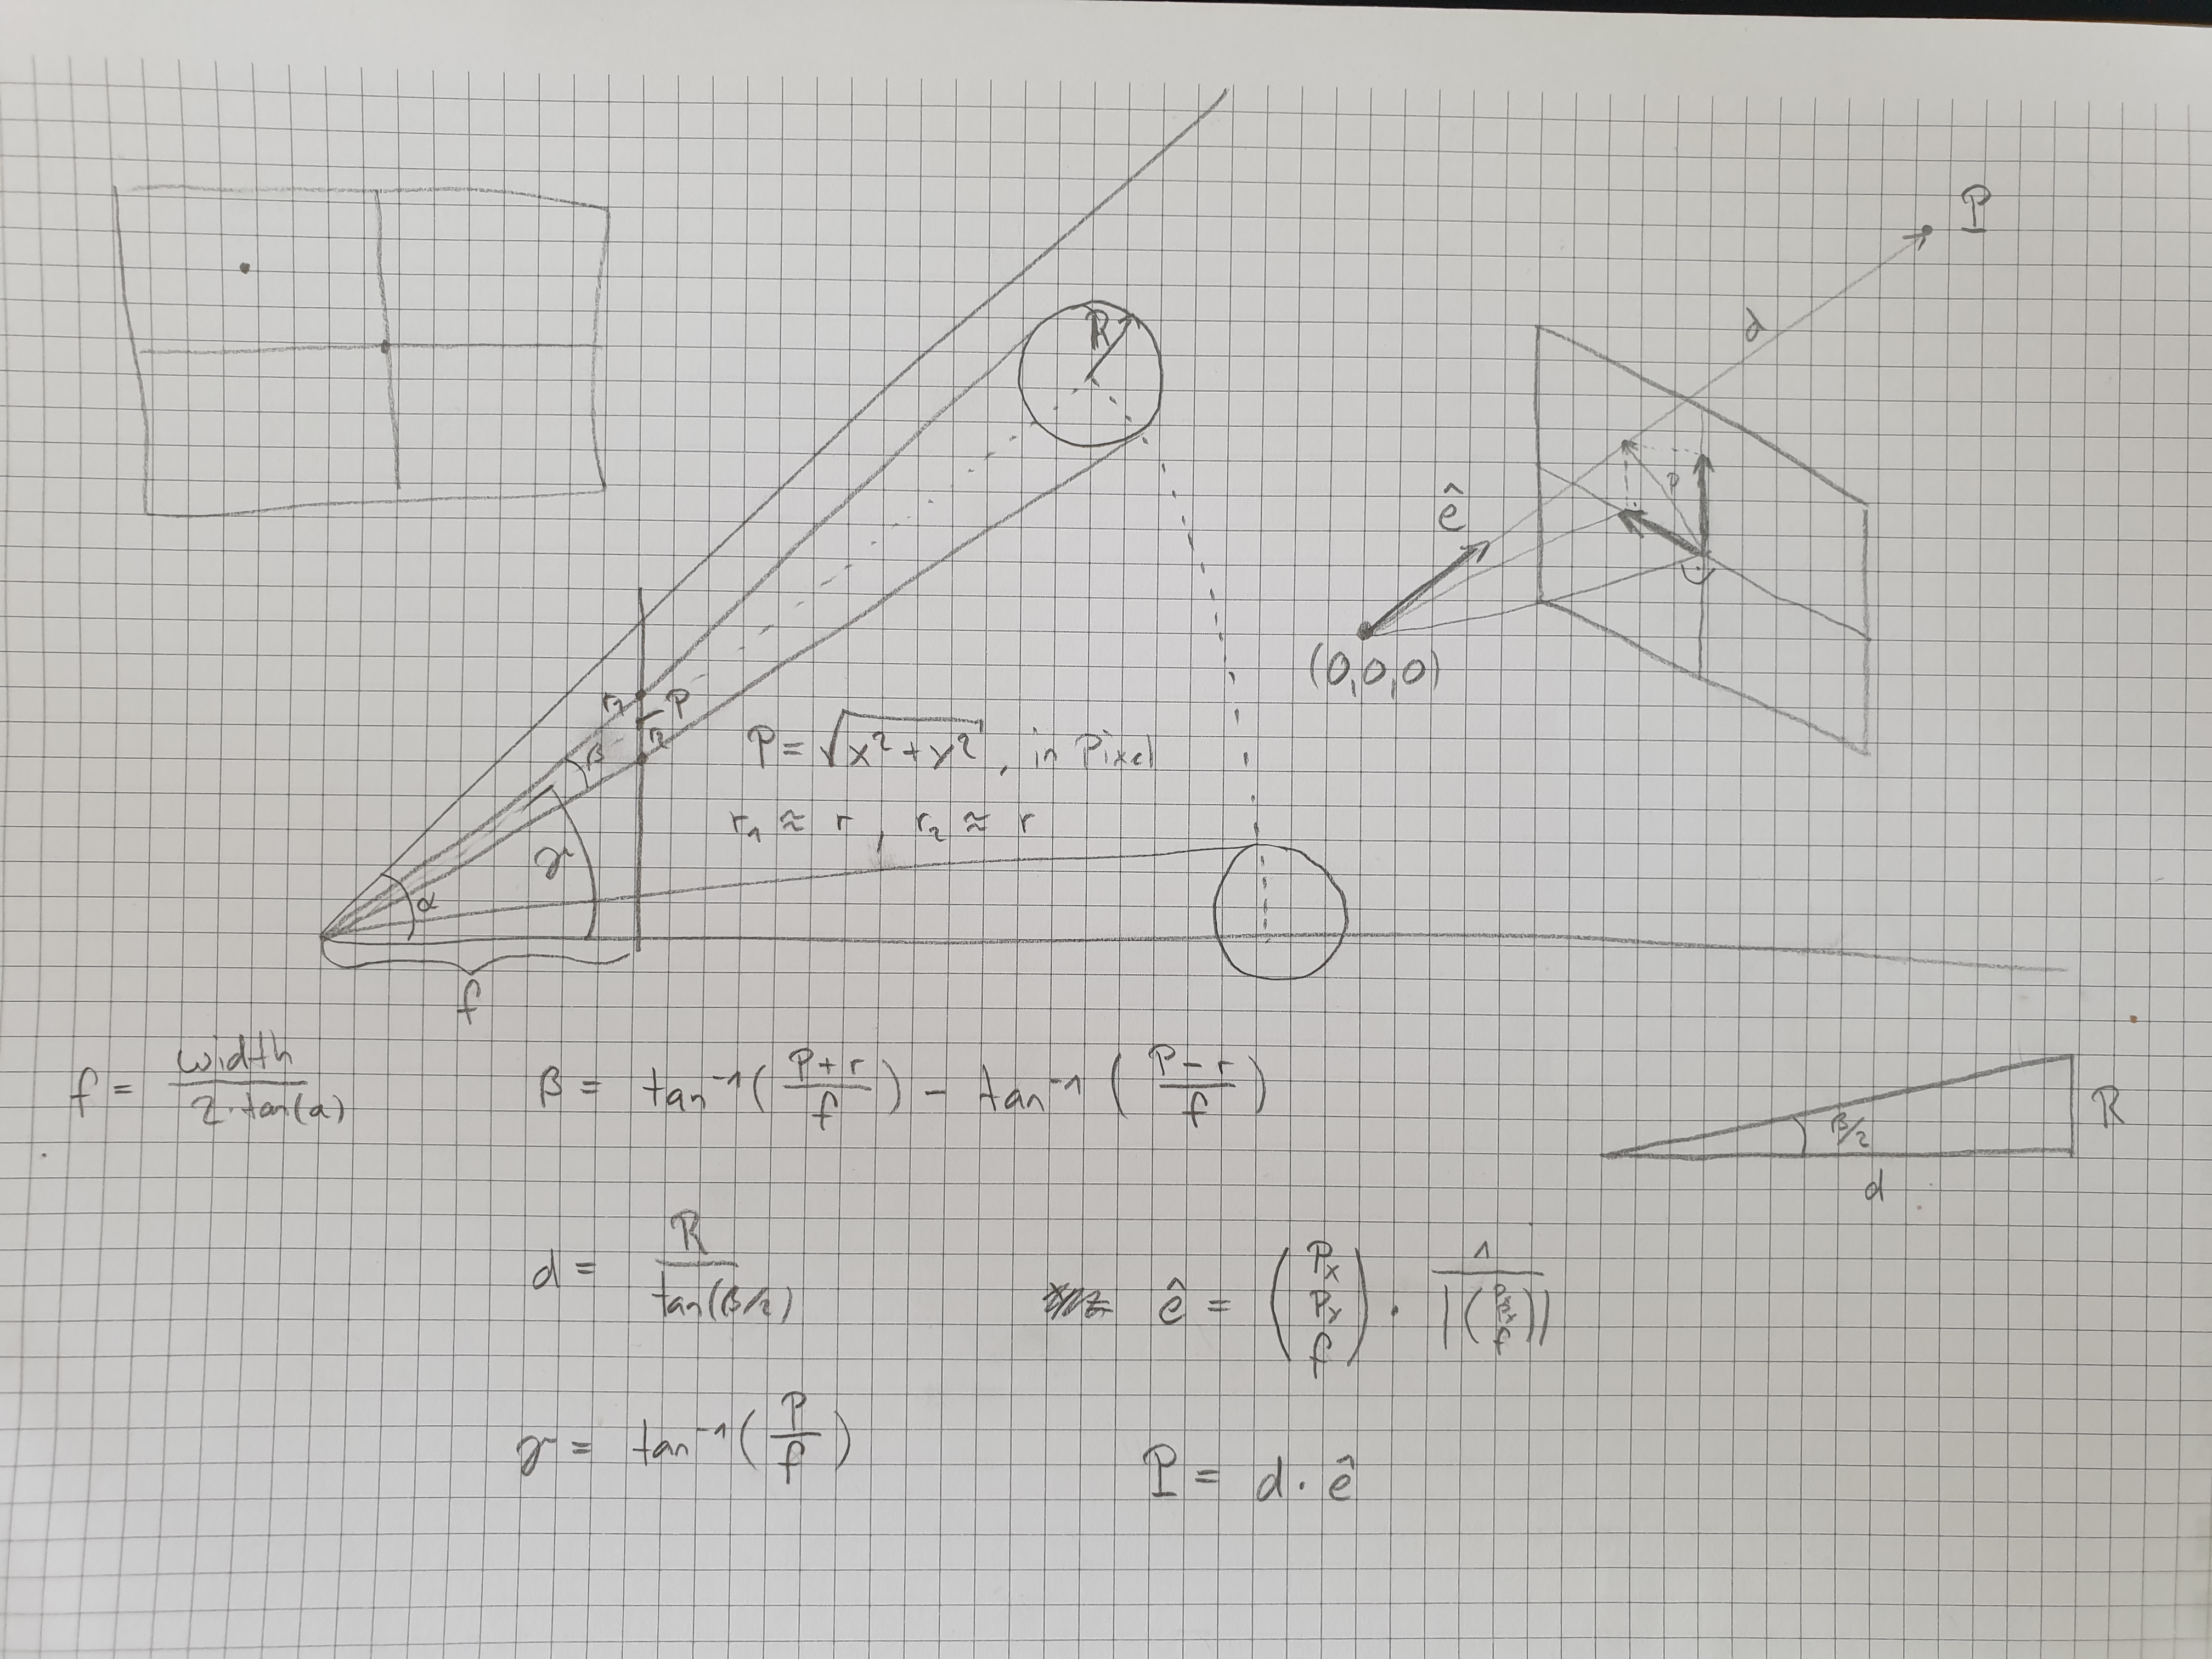 R
P
d
ê
(0,0,0)
r₁ P
r₂
β
P = √(x² + y²) , in Pixel
r₁ ≈ r , r₂ ≈ r
γ
α
f
f = width / (2·tan(α))
β = tan⁻¹((P + r) / f) − tan⁻¹((P − r) / f)
R
β/2
d
d = R / tan(β/2)
ê = (Px Py f) · 1 / |(Px Py f)|
γ = tan⁻¹(P / f)
P = d · ê